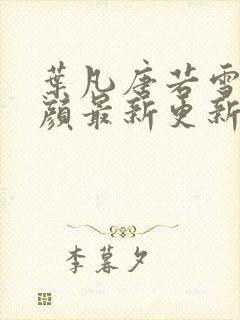 葉凡唐若雪
顔最新更新
李暮夕